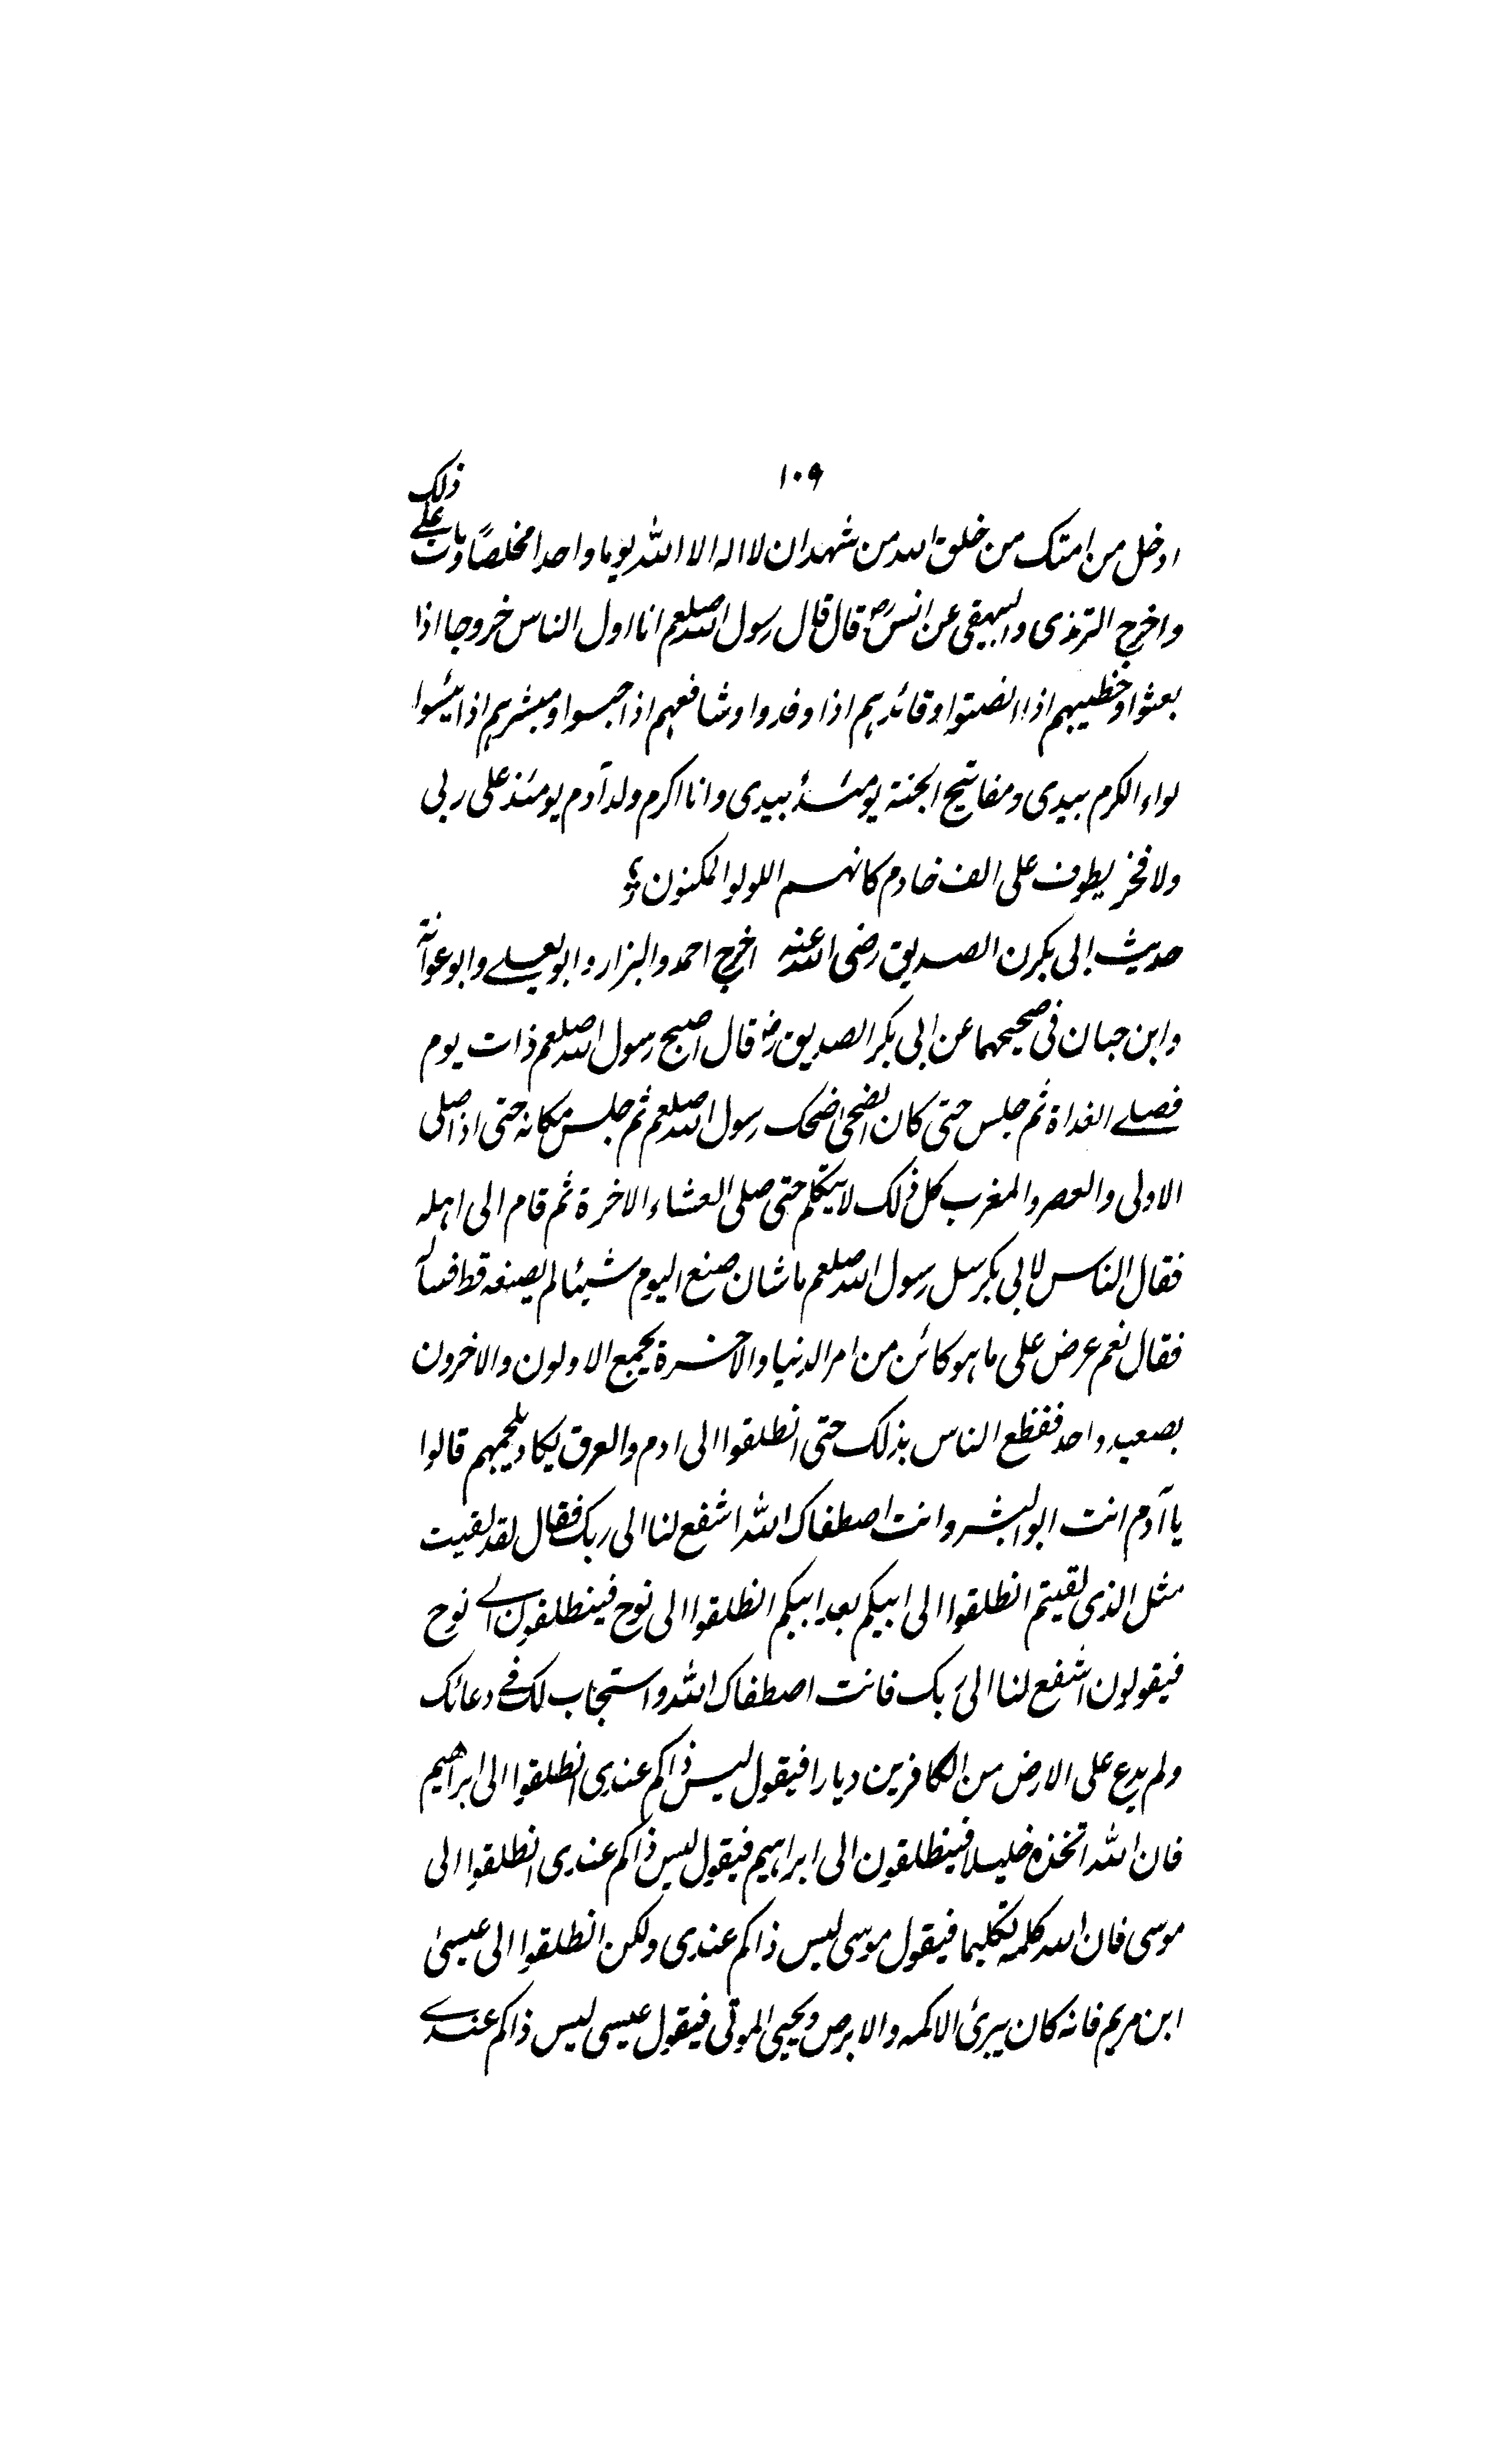 ١٠٩
ادخل من امتك من خلق الله من شهد ان لا اله الا الله يوما واحدا مخلصًا ومات على ذلك
واخرج الترمذى والبيهقى عن انسؓ قال قال رسول الله صلعم انا اول الناس خروجا اذا
بعثوا وخطيبهم اذا انصتوا وقائدهم اذا وفدوا وشافعهم اذا حبسوا ومبشرهم اذا يئسوا
لواء الكرم بيدى ومفاتيح الجنة يومئذٍ بيدى وانا اكرم ولد آدم يومئذ على ربى
ولا فخر يطوف على الف خادم كانهم اللولو المكنون
حديث ابى بكرن الصديق رضى الله عنه اخرج احمد والبزار وابو يعلے وابو عوانة
وابن حبان فى صحيحهما عن ابى بكر الصديق رضؓ قال اصبح رسول الله صلعم ذات يوم
فصلے الغداة ثم جلس حتى كان الضحى اضحك رسول الله صلعم ثم جلس مكانه حتى اذا صلى
الاولى والعصر والمغرب كل ذلك لا يتكلم حتى صلى العشاء الاخرة ثم قام الى اهله
فقال الناس لابى بكر سل رسول الله صلعم ما شان صنع اليوم شيئا لم يصنعه قط فسأله
فقال نعم عرض على ما هو كائن من امر الدنيا والاخرة يجمع الاولون والاخرون
بصعيد واحد ففظع الناس بذلك حتى انطلقوا الى ادم والعرق يكاد يلجمهم قالوا
يا آدم انت ابو البشر وانت اصطفاك الله اشفع لنا الى ربك فقال لقد لقيت
مثل الذى لقيتم انطلقوا الى ابيكم بعد ابيكم انطلقوا الى نوح فينطلقون الے نوح
فيقولون اشفع لنا الى ربك فانت اصطفاك الله واستجاب لك فے دعائك
ولم يدع على الارض من الكافرين ديارا فيقول ليس ذاكم عندى انطلقوا الى ابراهيم
فان الله اتخذه خليلا فينطلقون الى ابراهيم فيقول ليس ذاكم عندى انطلقوا الى
موسى فان الله كلمه تكليما فيقول موسى ليس ذاكم عندى ولكن انطلقوا الى عيسىٰ
ابن مريم فانه كان يبرئ الاكمه والابرص ويحيى الموتى فيقول عيسى ليس ذاكم عندے